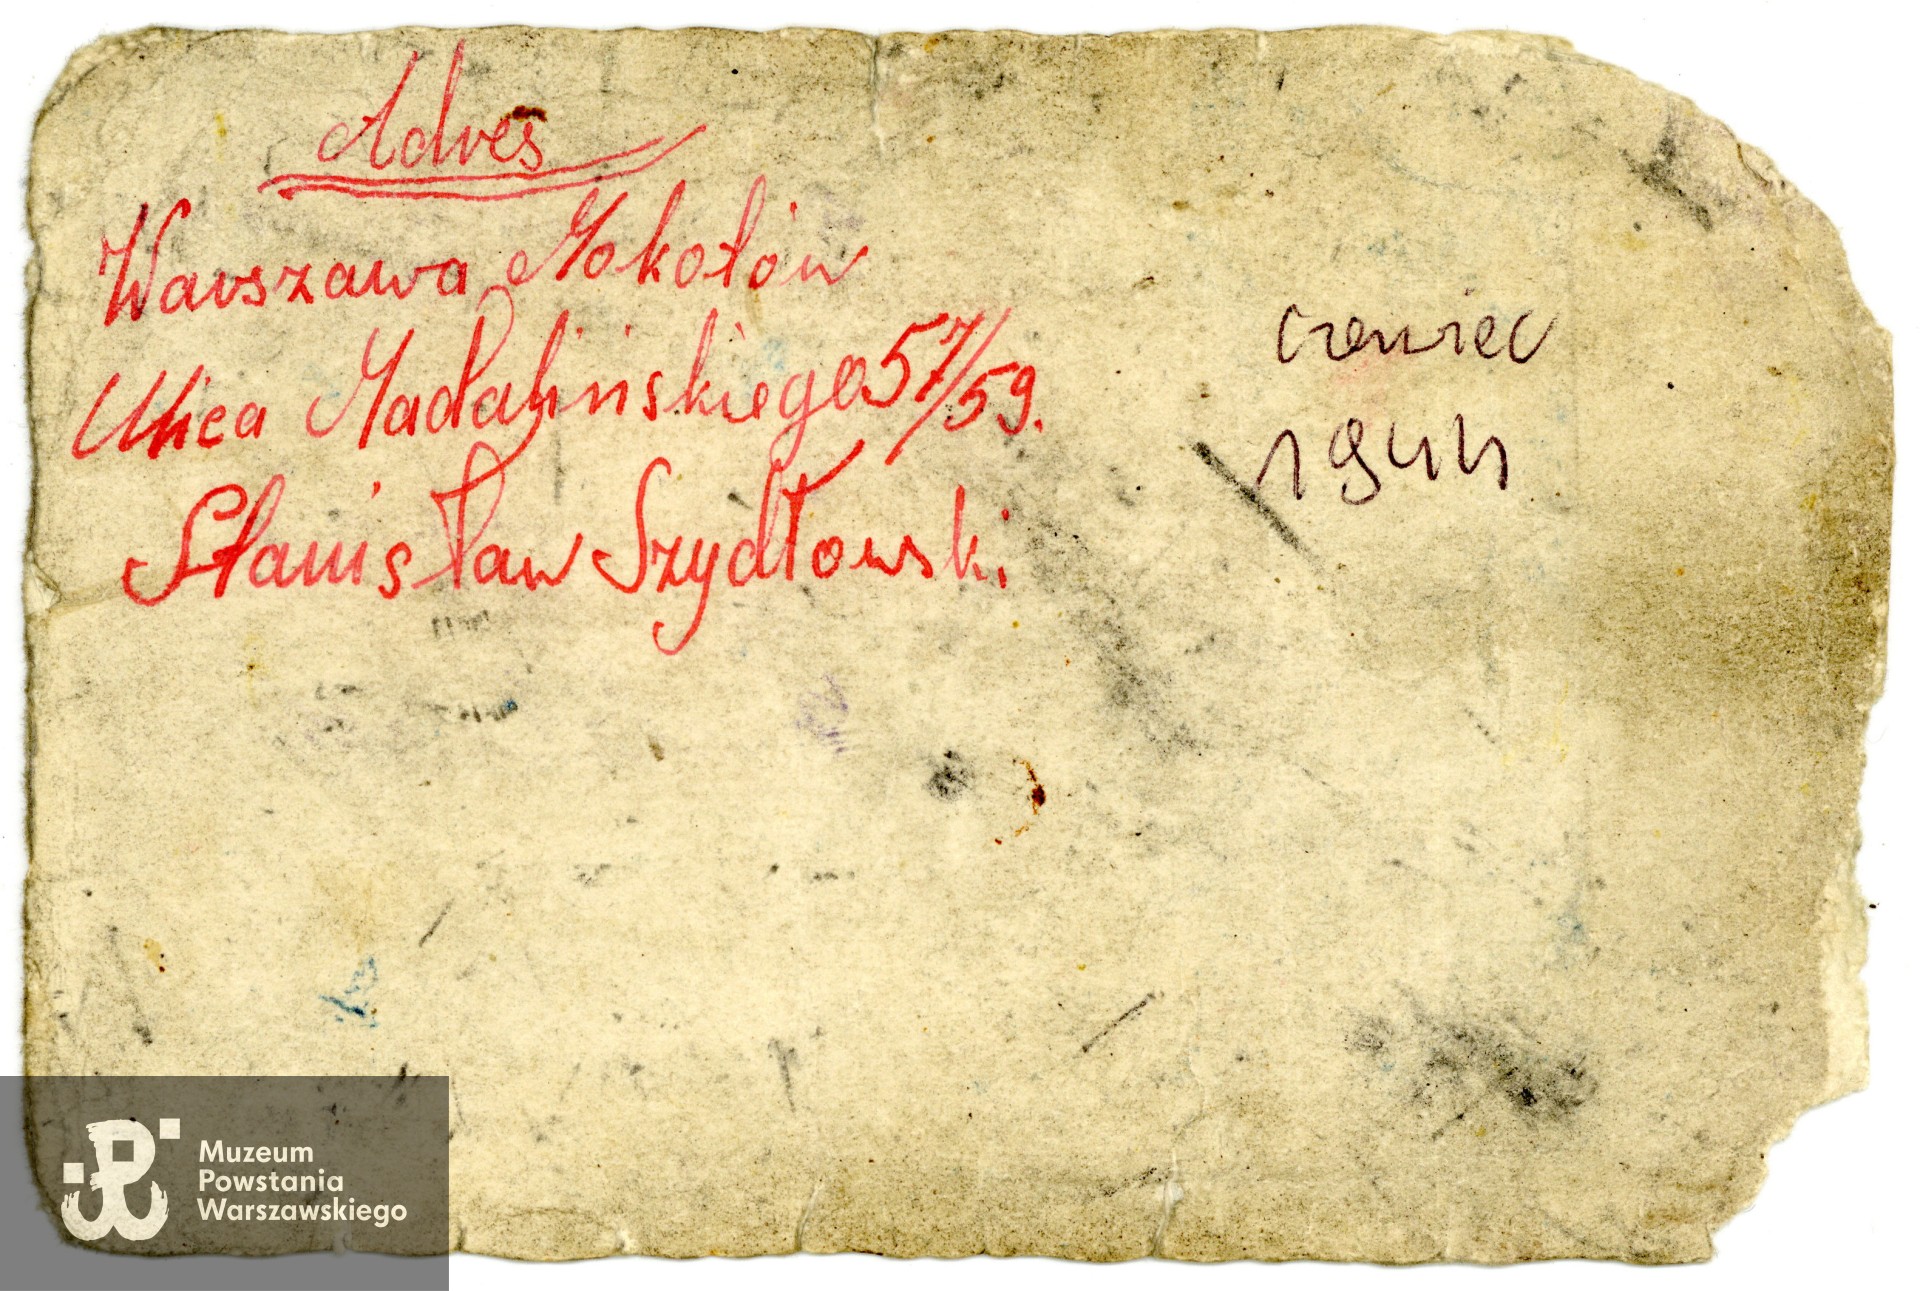 Adres
Warszawa Mokotów
Ulica Madalińskiego 57/59.
Stanisław Szydłowski
czerwiec
1944
Muzeum
Powstania
Warszawskiego